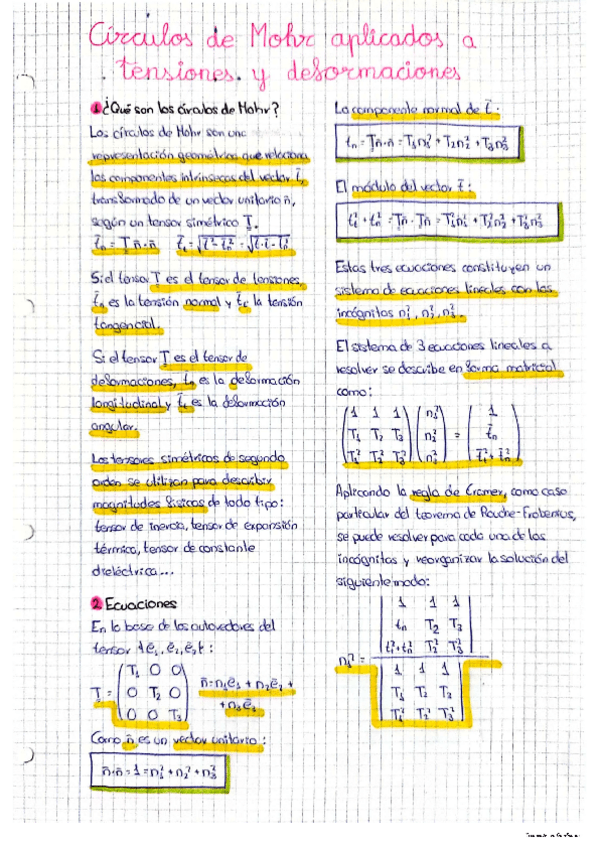 Círculos de Mohr aplicados a
tensiones y deformaciones
1 ¿Qué son los círculos de Mohr?
Los círculos de Mohr son una
representación geométrica que relaciona
las componentes intrínsecas del vector t̄,
transformado de un vector unitario n̄,
según un tensor simétrico T.
t̄n = T n̄·n̄   t̄t = √(t̄²-t̄n²) = √(t̄·t̄-t̄n²)
Si el tensor T es el tensor de tensiones,
t̄n es la tensión normal y t̄t la tensión
tangencial.
Si el tensor T es el tensor de
deformaciones, t̄n es la deformación
longitudinal y t̄t es la deformación
angular.
Los tensores simétricos de segundo
orden se utilizan para describir
magnitudes físicas de todo tipo:
tensor de inercia, tensor de expansión
térmica, tensor de constante
dieléctrica...
2 Ecuaciones
En la base de los autovectores del
tensor {e₁, e₂, e₃}:
T = (T₁ 0 0
0 T₂ 0
0 0 T₃)
n̄ = n₁ē₁ + n₂ē₂ +
+ n₃ē₃
Como n̄ es un vector unitario:
n̄·n̄ = 1 = n₁² + n₂² + n₃²
La componente normal de t̄:
tn = Tn̄·n̄ = T₁n₁² + T₂n₂² + T₃n₃²
El módulo del vector t̄:
tt² + tn² = Tn̄·Tn̄ = T₁²n₁² + T₂²n₂² + T₃²n₃²
Estas tres ecuaciones constituyen un
sistema de ecuaciones lineales con las
incógnitas n₁², n₂², n₃².
El sistema de 3 ecuaciones lineales a
resolver se describe en forma matricial
como:
(1 1 1) (n₁²) (1)
(T₁ T₂ T₃) (n₂²) = (t̄n)
(T₁² T₂² T₃²) (n₃²) (t̄t²+t̄n²)
Aplicando la regla de Cramer, como caso
particular del teorema de Rouche-Frobenius,
se puede resolver para cada una de las
incógnitas y reorganizar la solución del
siguiente modo:
|1 1 1|
|tn T₂ T₃|
|tt²+tn² T₂² T₃²|
n₁² =
|1 1 1|
|T₁ T₂ T₃|
|T₁² T₂² T₃²|